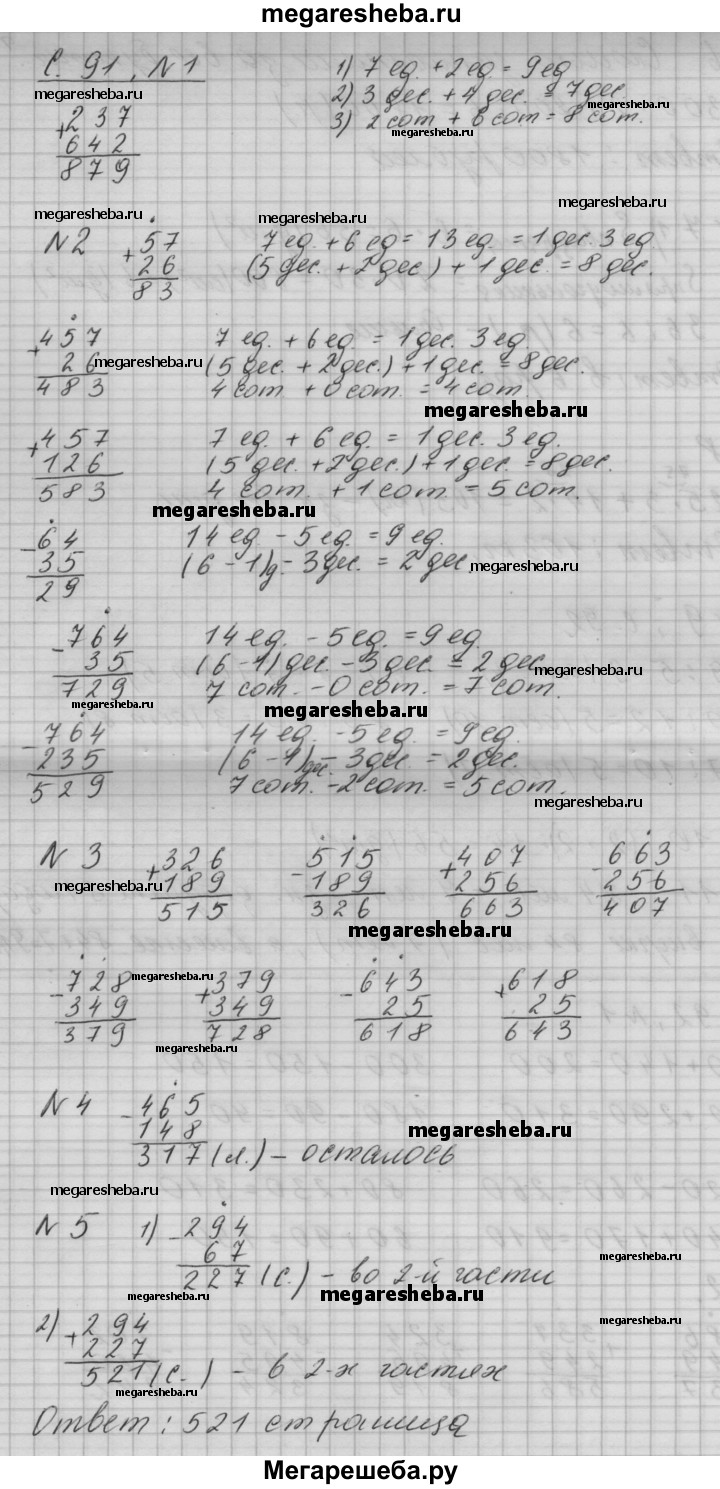 megaresheba.ru
С. 91, N 1
1) 7 ед. + 2 ед. = 9 ед
megaresheba.ru
2) 3 дес. + 4 дес. = 7 дес.
megaresheba.ru
3) 2 сот + 6 сот = 8 сот.
megaresheba.ru
+237
642
879
megaresheba.ru
megaresheba.ru
megaresheba.ru
N2
+57
26
83
7 ед. + 6 ед = 13 ед. = 1 дес. 3 ед
(5 дес. + 2 дес.) + 1 дес. = 8 дес.
+457
26
483
megaresheba.ru
7 ед. + 6 ед. = 1 дес. 3 ед.
(5 дес. + 2 дес.) + 1 дес. = 8 дес.
4 сот + 0 сот. = 4 сот.
megaresheba.ru
+457
126
583
7 ед. + 6 ед. = 1 дес. 3 ед.
(5 дес. + 2 дес.) + 1 дес. = 8 дес.
4 сот. + 1 сот = 5 сот.
megaresheba.ru
-64
35
29
14 ед. - 5 ед. = 9 ед.
(6 - 1)д - 3 дес. = 2 дес.
megaresheba.ru
-764
35
729
megaresheba.ru
14 ед. - 5 ед. = 9 ед
(6 - 1) дес. - 3 дес. = 2 дес
7 сот. - 0 сот. = 7 сот.
megaresheba.ru
megaresheba.ru
-764
235
529
14 ед. - 5 ед. = 9 ед.
(6 - 1)дес. - 3 дес. = 2 дес.
7 сот. - 2 сот. = 5 сот.
megaresheba.ru
N 3
megaresheba.ru
+326
189
515
-515
189
326
+407
256
663
-663
256
407
megaresheba.ru
-728
349
379
megaresheba.ru
+379
349
728
megaresheba.ru
-643
25
618
+618
25
643
N 4
-465
148
317 (л.) - осталось
megaresheba.ru
megaresheba.ru
N 5
1) -294
67
227 (с.) - во 2-й части
megaresheba.ru
megaresheba.ru
megaresheba.ru
2) +294
227
521 (с.) - в 2-х частях
megaresheba.ru
megaresheba.ru
Ответ: 521 страница
Мегарешеба.ру